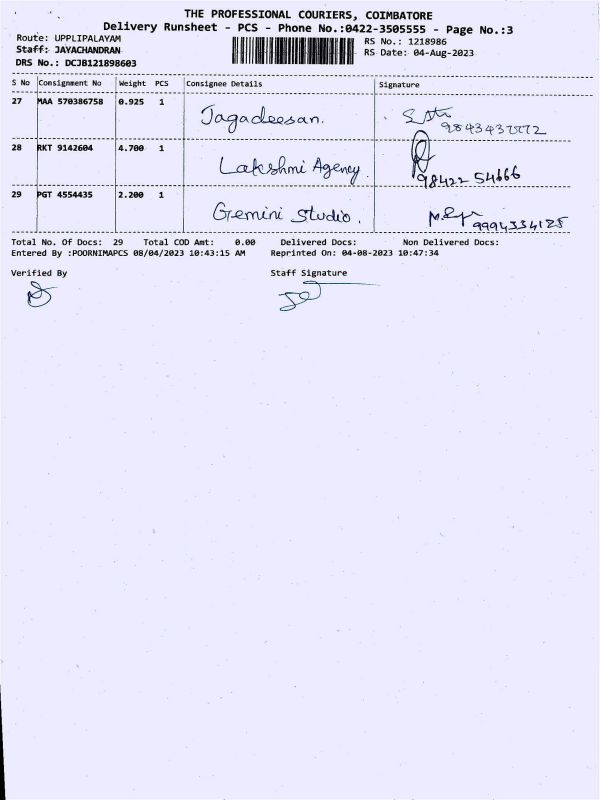 THE PROFESSIONAL COURIERS, COIMBATORE
Delivery Runsheet - PCS - Phone No.:0422-3505555 - Page No.:3
Route: UPPLIPALAYAM
RS No.: 1218986
Staff: JAYACHANDRAN
RS Date: 04-Aug-2023
DRS No.: DCJB121898603
S No Consignment No Weight PCS Consignee Details Signature
27 MAA 570386758 0.925 1 Jagadeesan.
28 RKT 9142604 4.700 1 Lakshmi Agency.
98422 54666
29 PGT 4554435 2.200 1 Gemini Studio.
9994334125
Total No. Of Docs: 29 Total COD Amt: 0.00 Delivered Docs: Non Delivered Docs:
Entered By :POORNIMAPCS 08/04/2023 10:43:15 AM Reprinted On: 04-08-2023 10:47:34
Verified By Staff Signature